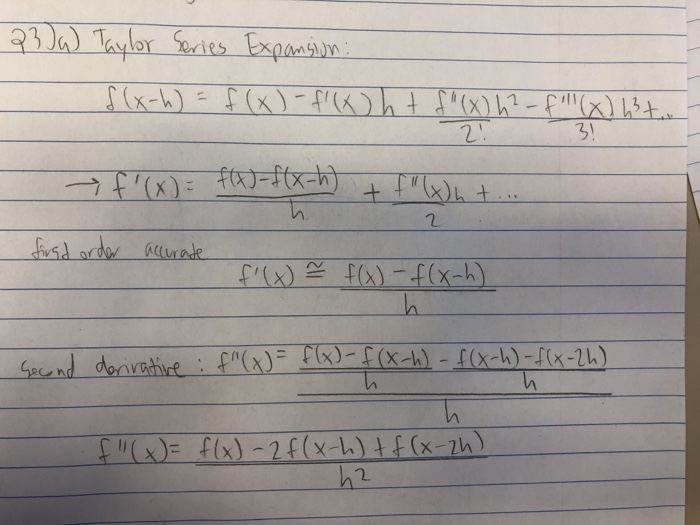 Q3)a) Taylor Series Expansion:
f(x-h) = f(x) - f'(x)h + f''(x)h²/2! - f'''(x)h³/3! + ...
→ f'(x) = f(x)-f(x-h)/h + f''(x)h/2 + ...
first order accurate
f'(x) ≅ f(x) - f(x-h)/h
Second derivative : f''(x) = f(x)-f(x-h)/h - f(x-h)-f(x-2h)/h / h
f''(x) = f(x) - 2f(x-h) + f(x-2h)/h²